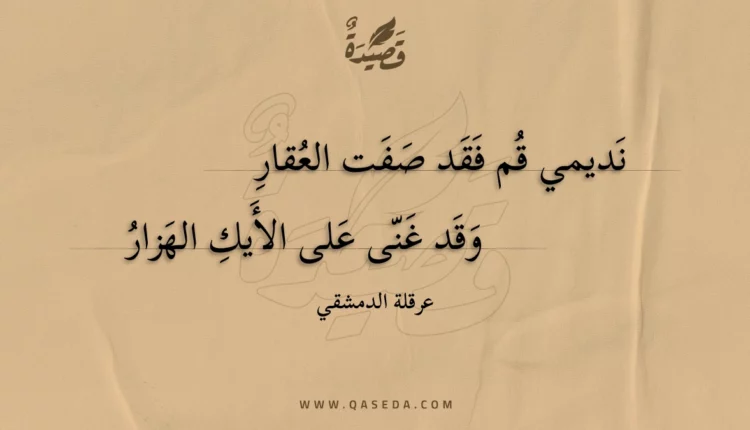 قَصِيدَةٌ
نَديمي قُم فَقَد صَفَت العُقارِ
وَقَد غَنّى عَلى الأَيكِ الهَزارُ
عرقلة الدمشقي
WWW.QASEDA.COM